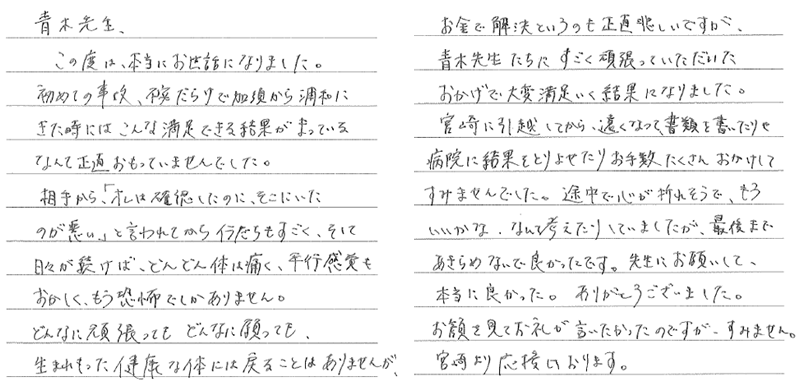 青木先生、
この度は、本当にお世話になりました。
初めての事故、不安だらけで加須から浦和に
きた時にはこんな満足できる結果がまっている
なんて正直おもっていませんでした。
相手から、「オレは確認したのに、そこにいた
のが悪い」と言われてから行だちもすごく、そして
日々が続けば、どんどん体は痛く、平行感覚も
おかしく、もう恐怖でしかありません。
どんなに頑張っても どんなに願っても、
生まれもった健康な体には戻ることはありませんが、
お金で解決というのも正直悲しいですが、
青木先生たちに すごく頑張っていただいた
おかげで大変満足いく結果になりました。
宮崎に引越してから、遠くなって書類を書いたりや
病院に結果をとりよせたりお手数たくさんおかけして
すみませんでした。途中で心が折れそうで、もう
いいかな、なんて考えたりしていましたが、最後まで
あきらめないで良かったです。先生にお願いして、
本当に良かった。ありがとうございました。
お顔を見てお礼が言いたかったのですが、すみません。
宮崎より応援しております。